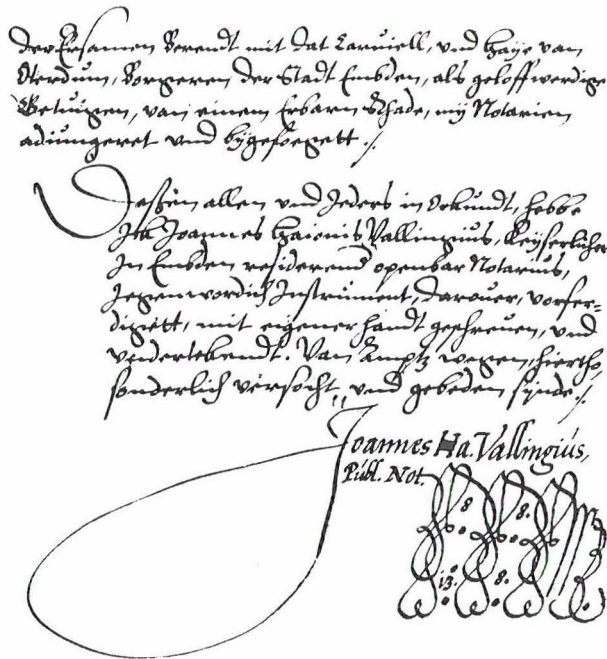 der Ersamen Berendt mit dat Karviell, vnd Haÿe van
Oterdum, Borgeren der Stadt Embden, als geloffwerdige
Getuigen, van einem Erbarn Rhade, mÿ Notarien
adiungeret vnd bÿgefoegett ./.
Dessen allen vnd Jeders in Orkundt, hebbe
Ick Joannes Haionis Vallingius, Keÿserlicher
In Embden residerend openbar Notarius,
Jegenwordich Instrument, darouer, vorfer-
digett, mit eigener handt geschreuen, vnd
vndertekendt. Van Amptz wegen, hiertho,
sonderlich versocht, vnd gebeden sÿnde ./.
Joannes Ha. Vallingius,
Publ. Not
8 8.
13. 8.